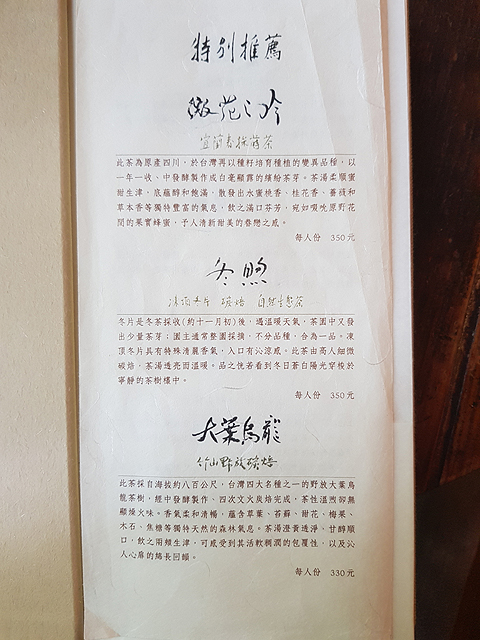 特別推薦
微花吟
宜蘭春摘蒔茶
此茶為原產四川，於台灣再以種籽培育種植的變異品種，以
一年一收、中發酵製作成白毫顯露的繽紛茶芽。茶湯柔順蜜
甜生津，底蘊醇和飽滿，散發出水蜜桃香、桂花香、薔薇和
草本香等獨特豐富的氣息，飲之滿口芬芳，宛如吸吮原野花
間的果實蜂蜜，予人清新甜美的眷戀之感。
每人份 350元
冬煦
凍頂冬片 碳焙 自然生態茶
冬片是冬茶採收(約十一月初)後，遇溫暖天氣，茶園中又發
出少量茶芽；園主通常整園採摘，不分品種，合為一品。凍
頂冬片具有特殊清麗香氣，入口有沁涼感。此茶由高人細微
碳焙，茶湯透亮而溫暖。品之恍若看到冬日蒼白陽光穿梭於
寧靜的茶樹欉中。
每人份 350元
大葉烏龍
竹山野放碳焙
此茶採自海拔約八百公尺，台灣四大名種之一的野放大葉烏
龍茶樹，經中發酵製作、四次文火炭焙完成，茶性溫煦卻無
顯燥火味。香氣柔和清暢，蘊含草葉、苔蘚、甜花、梅果、
木石、焦糖等獨特天然的森林氣息。茶湯澄黃透淨、甘醇順
口，飲之兩頰生津，可感受到其活軟稠潤的包覆性，以及沁
人心扉的綿長回韻。
每人份 330元